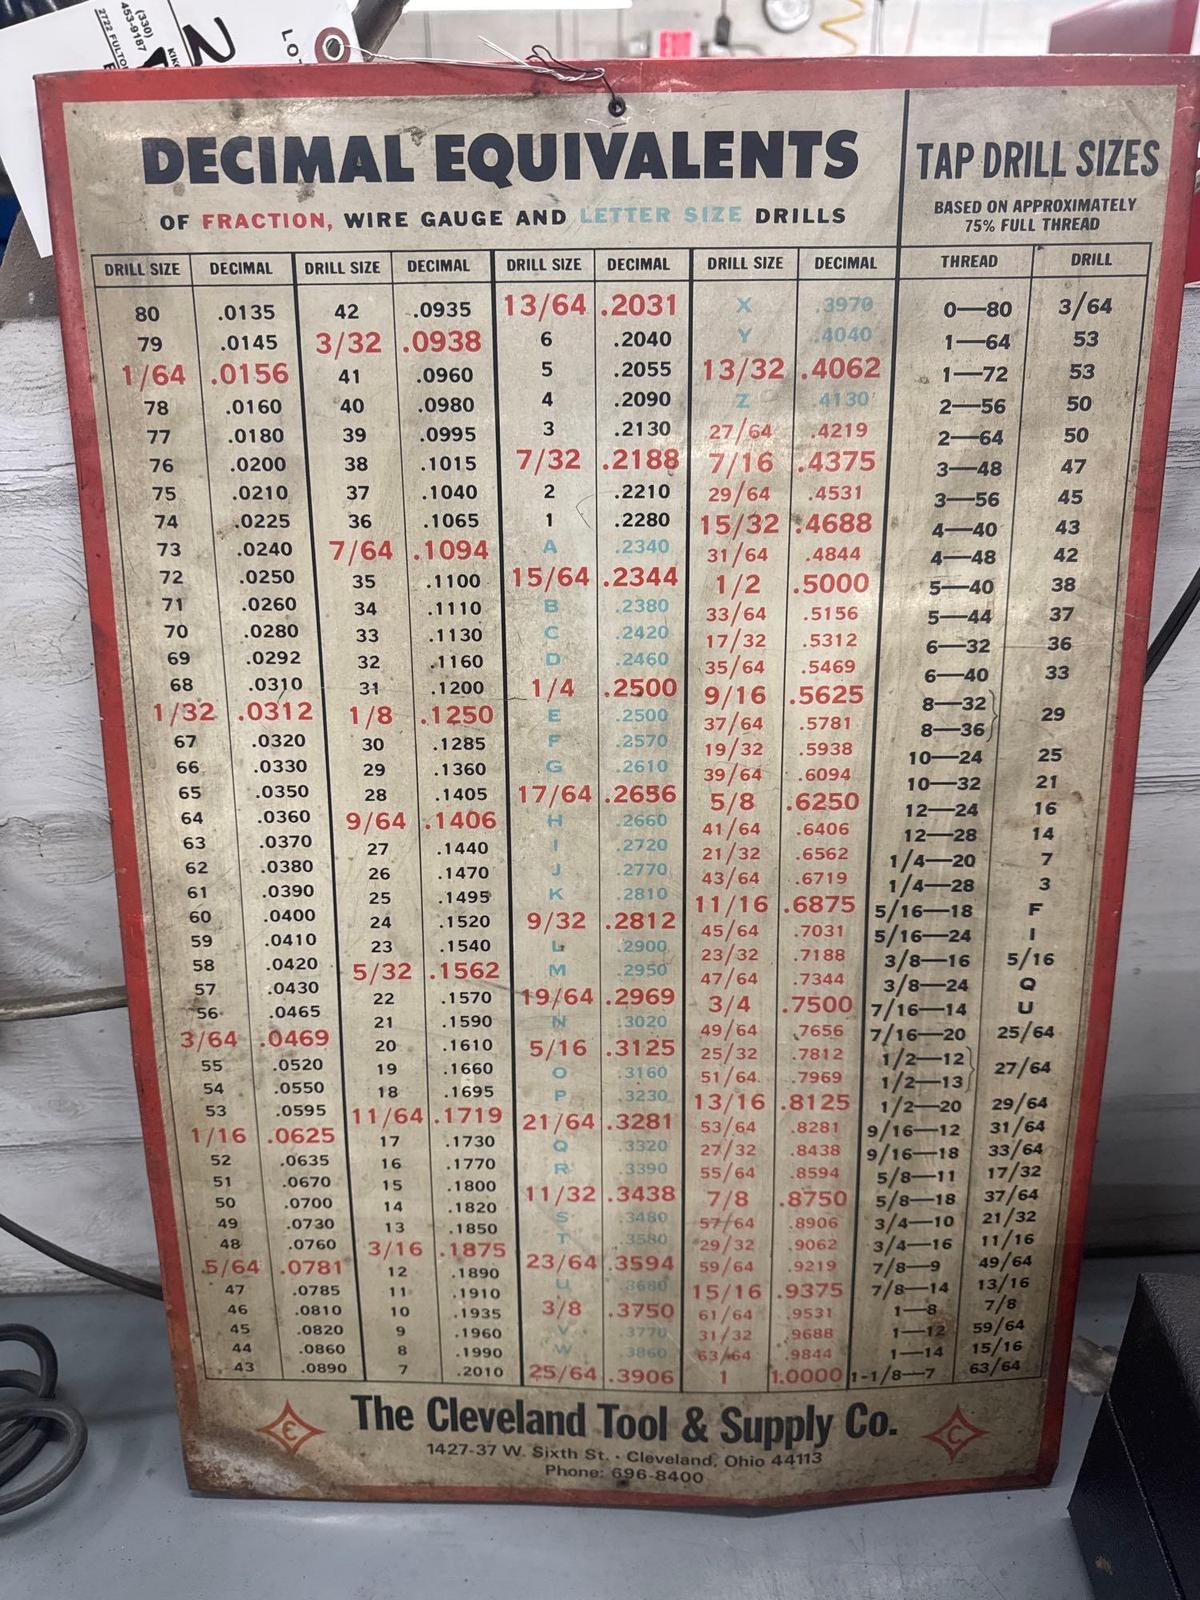 (330)
453-9187
2722 FULTO
KIK
2
LOT
DECIMAL EQUIVALENTS
OF FRACTION, WIRE GAUGE AND LETTER SIZE DRILLS
DRILL SIZE DECIMAL
80 .0135
79 .0145
1/64 .0156
78 .0160
77 .0180
76 .0200
75 .0210
74 .0225
73 .0240
72 .0250
71 .0260
70 .0280
69 .0292
68 .0310
1/32 .0312
67 .0320
66 .0330
65 .0350
64 .0360
63 .0370
62 .0380
61 .0390
60 .0400
59 .0410
58 .0420
57 .0430
56 .0465
3/64 .0469
55 .0520
54 .0550
53 .0595
1/16 .0625
52 .0635
51 .0670
50 .0700
49 .0730
48 .0760
5/64 .0781
47 .0785
46 .0810
45 .0820
44 .0860
43 .0890
DRILL SIZE DECIMAL
42 .0935
3/32 .0938
41 .0960
40 .0980
39 .0995
38 .1015
37 .1040
36 .1065
7/64 .1094
35 .1100
34 .1110
33 .1130
32 .1160
31 .1200
1/8 .1250
30 .1285
29 .1360
28 .1405
9/64 .1406
27 .1440
26 .1470
25 .1495
24 .1520
23 .1540
5/32 .1562
22 .1570
21 .1590
20 .1610
19 .1660
18 .1695
11/64 .1719
17 .1730
16 .1770
15 .1800
14 .1820
13 .1850
3/16 .1875
12 .1890
11 .1910
10 .1935
9 .1960
8 .1990
7 .2010
DRILL SIZE DECIMAL
13/64 .2031
6 .2040
5 .2055
4 .2090
3 .2130
7/32 .2188
2 .2210
1 .2280
A .2340
15/64 .2344
B .2380
C .2420
D .2460
1/4 .2500
E .2500
F .2570
G .2610
17/64 .2656
H .2660
I .2720
J .2770
K .2810
9/32 .2812
L .2900
M .2950
19/64 .2969
N .3020
5/16 .3125
O .3160
P .3230
21/64 .3281
Q .3320
R .3390
11/32 .3438
S .3480
T .3580
23/64 .3594
U .3680
3/8 .3750
V .3770
W .3860
25/64 .3906
DRILL SIZE DECIMAL
X .3970
Y .4040
13/32 .4062
Z .4130
27/64 .4219
7/16 .4375
29/64 .4531
15/32 .4688
31/64 .4844
1/2 .5000
33/64 .5156
17/32 .5312
35/64 .5469
9/16 .5625
37/64 .5781
19/32 .5938
39/64 .6094
5/8 .6250
41/64 .6406
21/32 .6562
43/64 .6719
11/16 .6875
45/64 .7031
23/32 .7188
47/64 .7344
3/4 .7500
49/64 .7656
25/32 .7812
51/64 .7969
13/16 .8125
53/64 .8281
27/32 .8438
55/64 .8594
7/8 .8750
57/64 .8906
29/32 .9062
59/64 .9219
15/16 .9375
61/64 .9531
31/32 .9688
63/64 .9844
1 1.0000
TAP DRILL SIZES
BASED ON APPROXIMATELY
75% FULL THREAD
THREAD DRILL
0—80 3/64
1—64 53
1—72 53
2—56 50
2—64 50
3—48 47
3—56 45
4—40 43
4—48 42
5—40 38
5—44 37
6—32 36
6—40 33
8—32
8—36 29
10—24 25
10—32 21
12—24 16
12—28 14
1/4—20 7
1/4—28 3
5/16—18 F
5/16—24 I
3/8—16 5/16
3/8—24 Q
7/16—14 U
7/16—20 25/64
1/2—12
1/2—13 27/64
1/2—20 29/64
9/16—12 31/64
9/16—18 33/64
5/8—11 17/32
5/8—18 37/64
3/4—10 21/32
3/4—16 11/16
7/8—9 49/64
7/8—14 13/16
1—8 7/8
1—12 59/64
1—14 15/16
1-1/8—7 63/64
The Cleveland Tool & Supply Co.
1427-37 W. Sixth St. • Cleveland, Ohio 44113
Phone: 696-8400